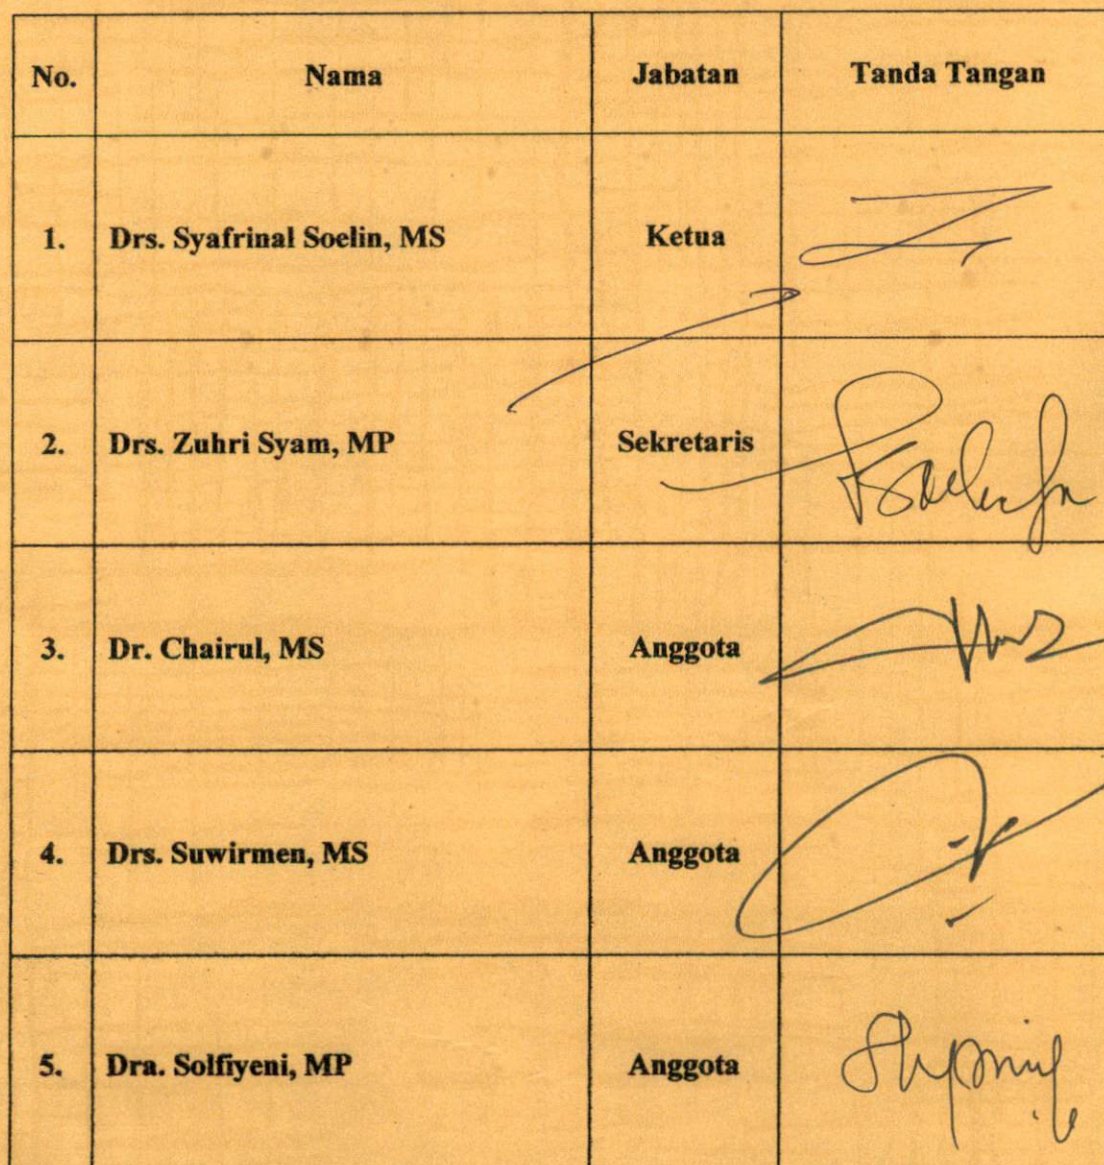 No. Nama Jabatan Tanda Tangan
1. Drs. Syafrinal Soelin, MS Ketua
2. Drs. Zuhri Syam, MP Sekretaris
3. Dr. Chairul, MS Anggota
4. Drs. Suwirmen, MS Anggota
5. Dra. Solfiyeni, MP Anggota